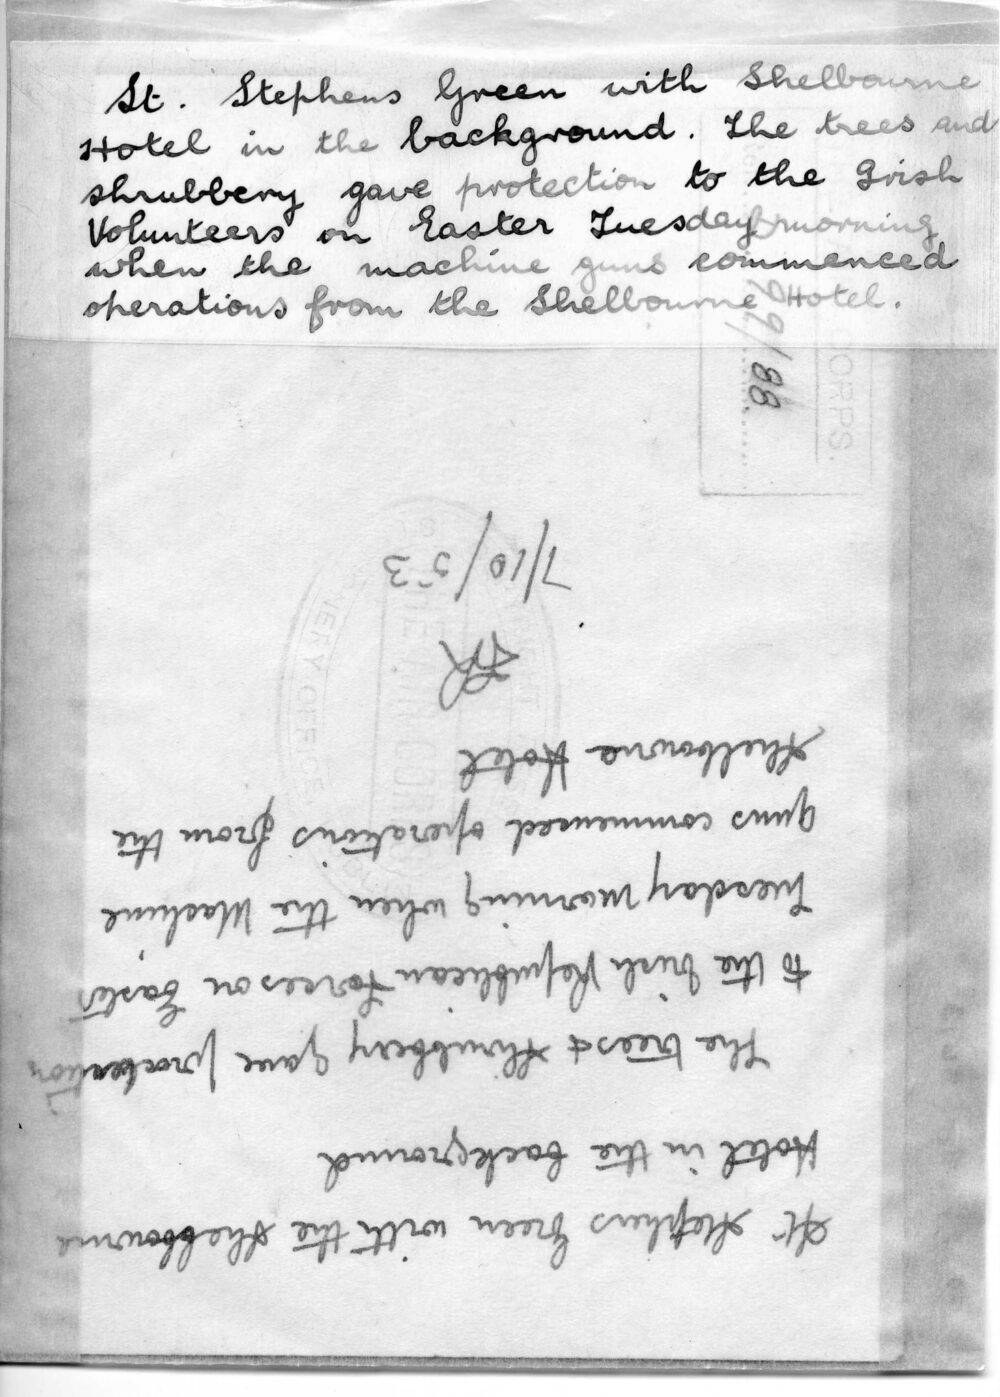 St. Stephens Green with Shelbourne
Hotel in the background. The trees and
shrubbery gave protection to the Irish
Volunteers on Easter Tuesday morning
when the machine guns commenced
operations from the Shelbourne Hotel.
ORPS.
9/88
St Stephens Green with the Shelbourne
Hotel in the background
The trees & shrubbery gave protection
to the Irish Republican Forces on Easter
Tuesday Morning when the Machine
guns commenced operations from the
Shelbourne Hotel
7/10/53
THE AIR CORPS